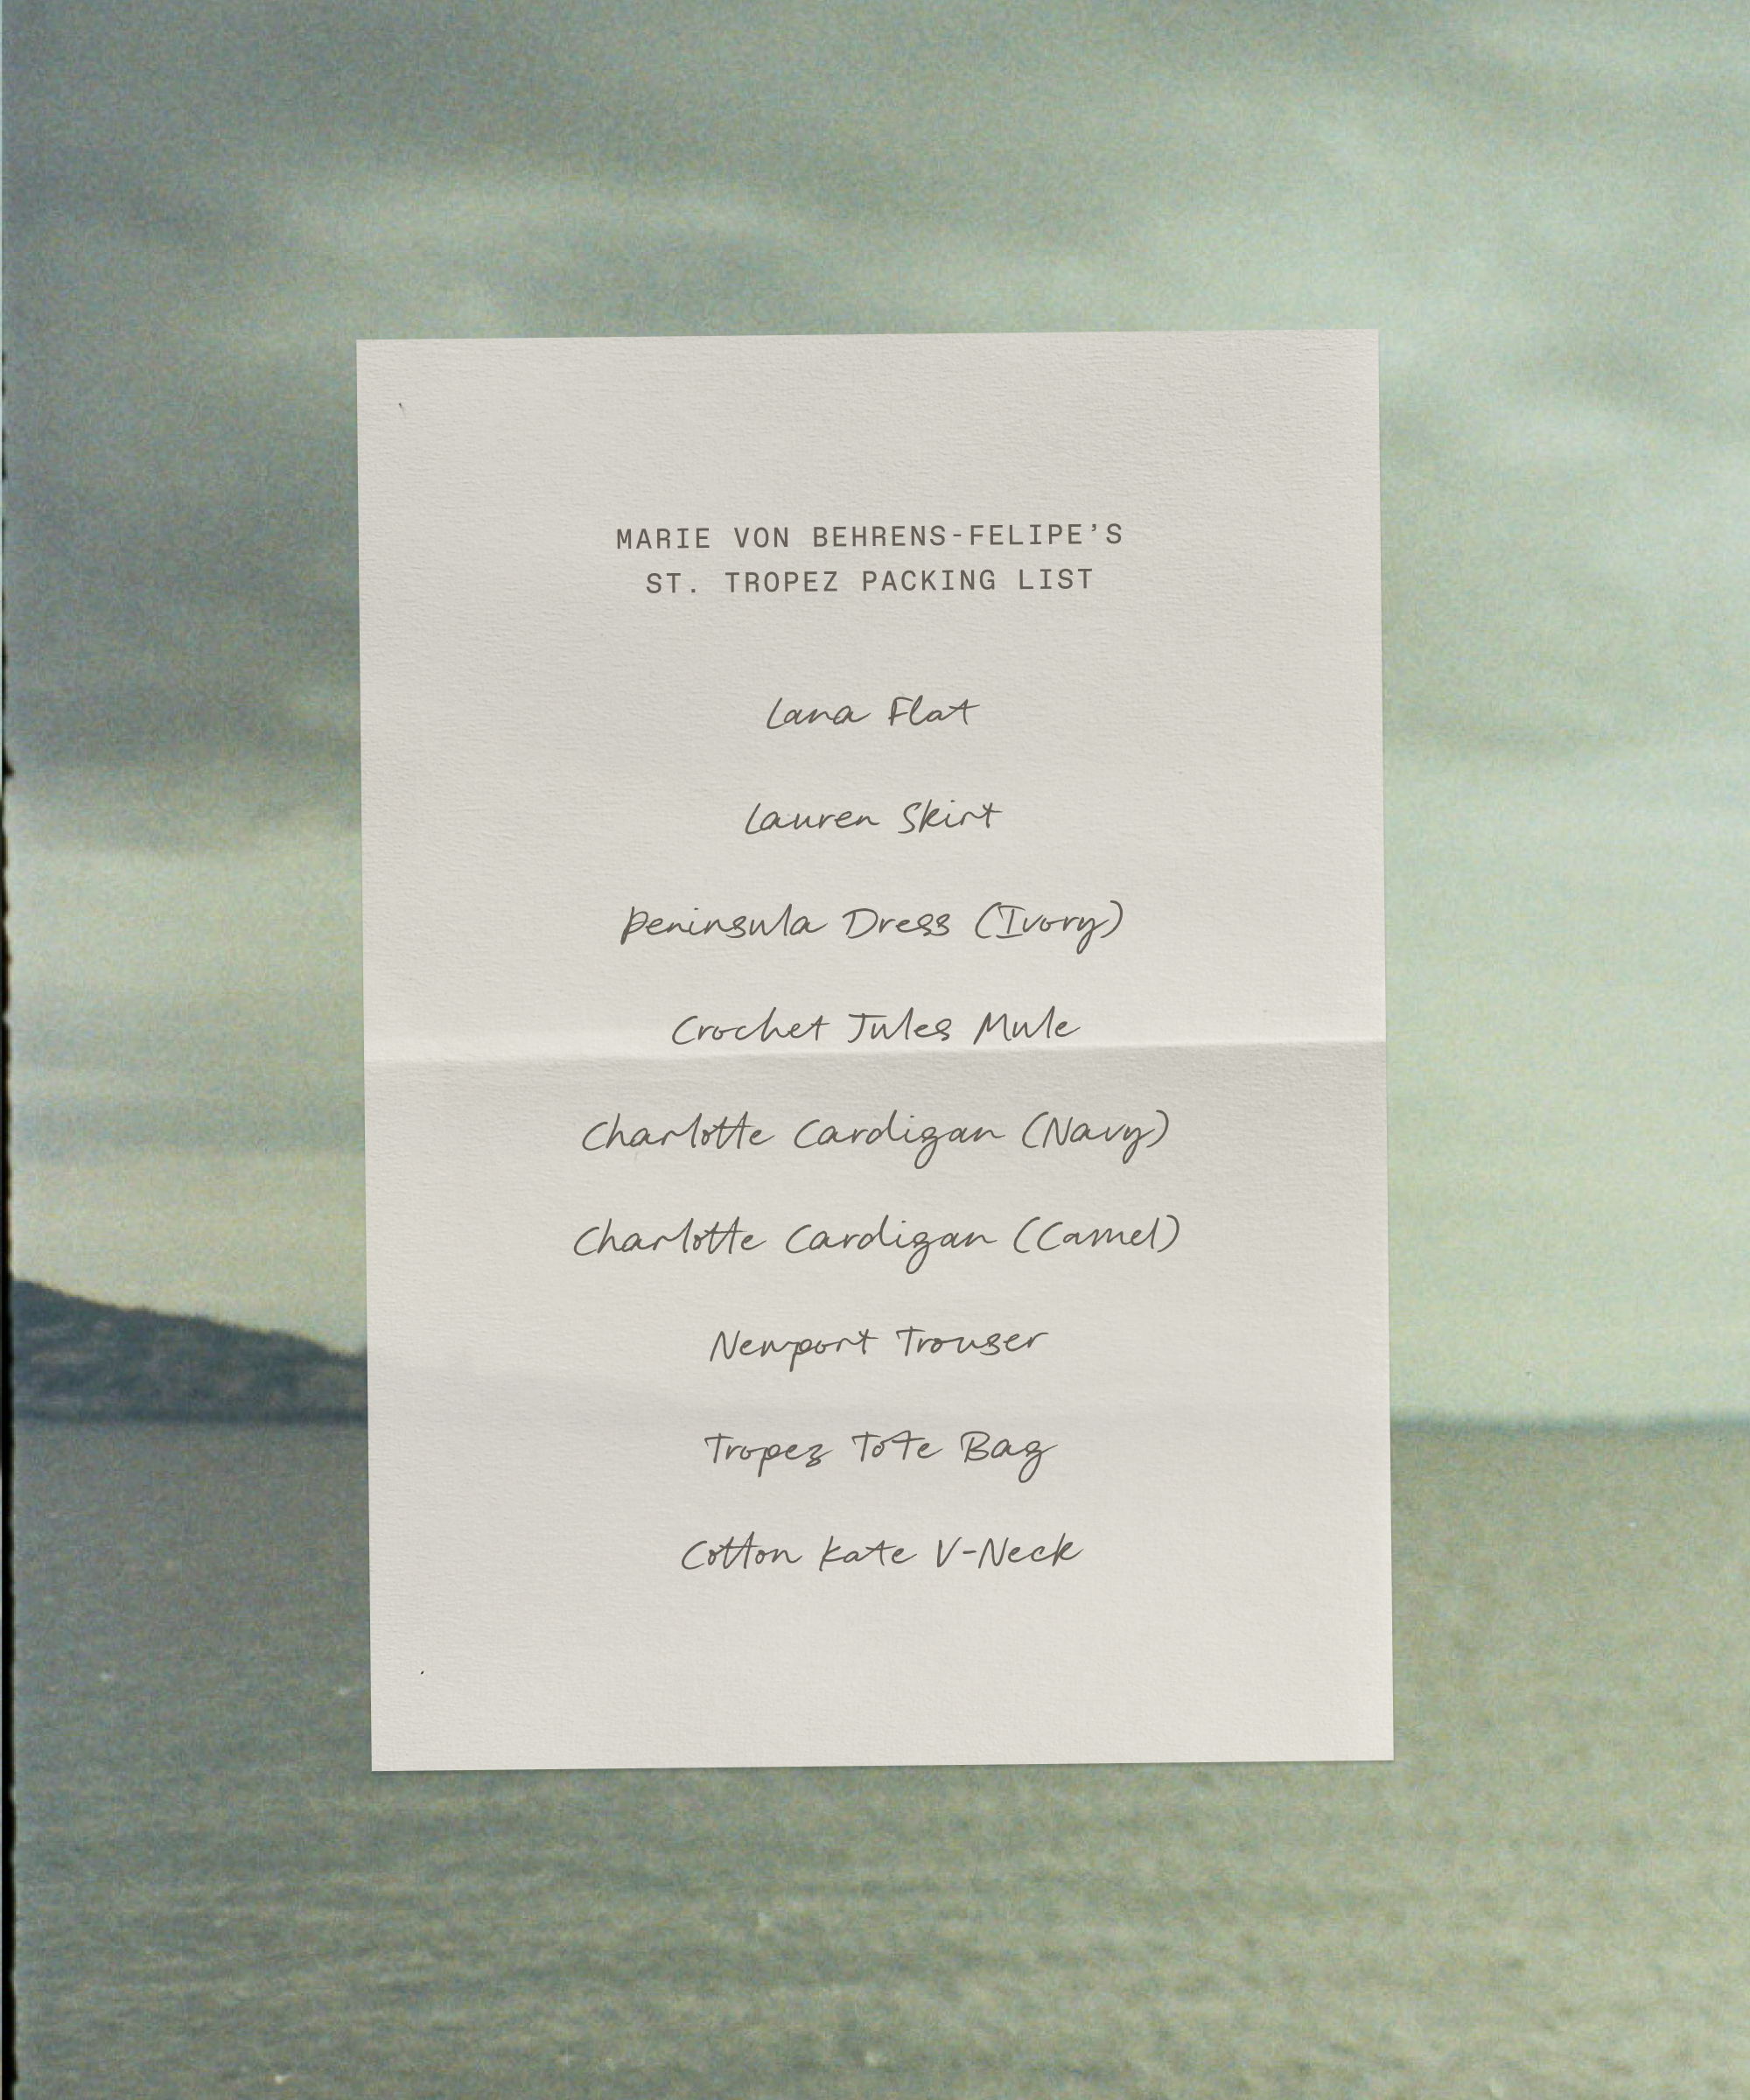 MARIE VON BEHRENS-FELIPE’S
ST. TROPEZ PACKING LIST
Lana Flat
Lauren Skirt
Peninsula Dress (Ivory)
Crochet Jules Mule
Charlotte Cardigan (Navy)
Charlotte Cardigan (Camel)
Newport Trouser
Tropez Tote Bag
Cotton Kate V-Neck